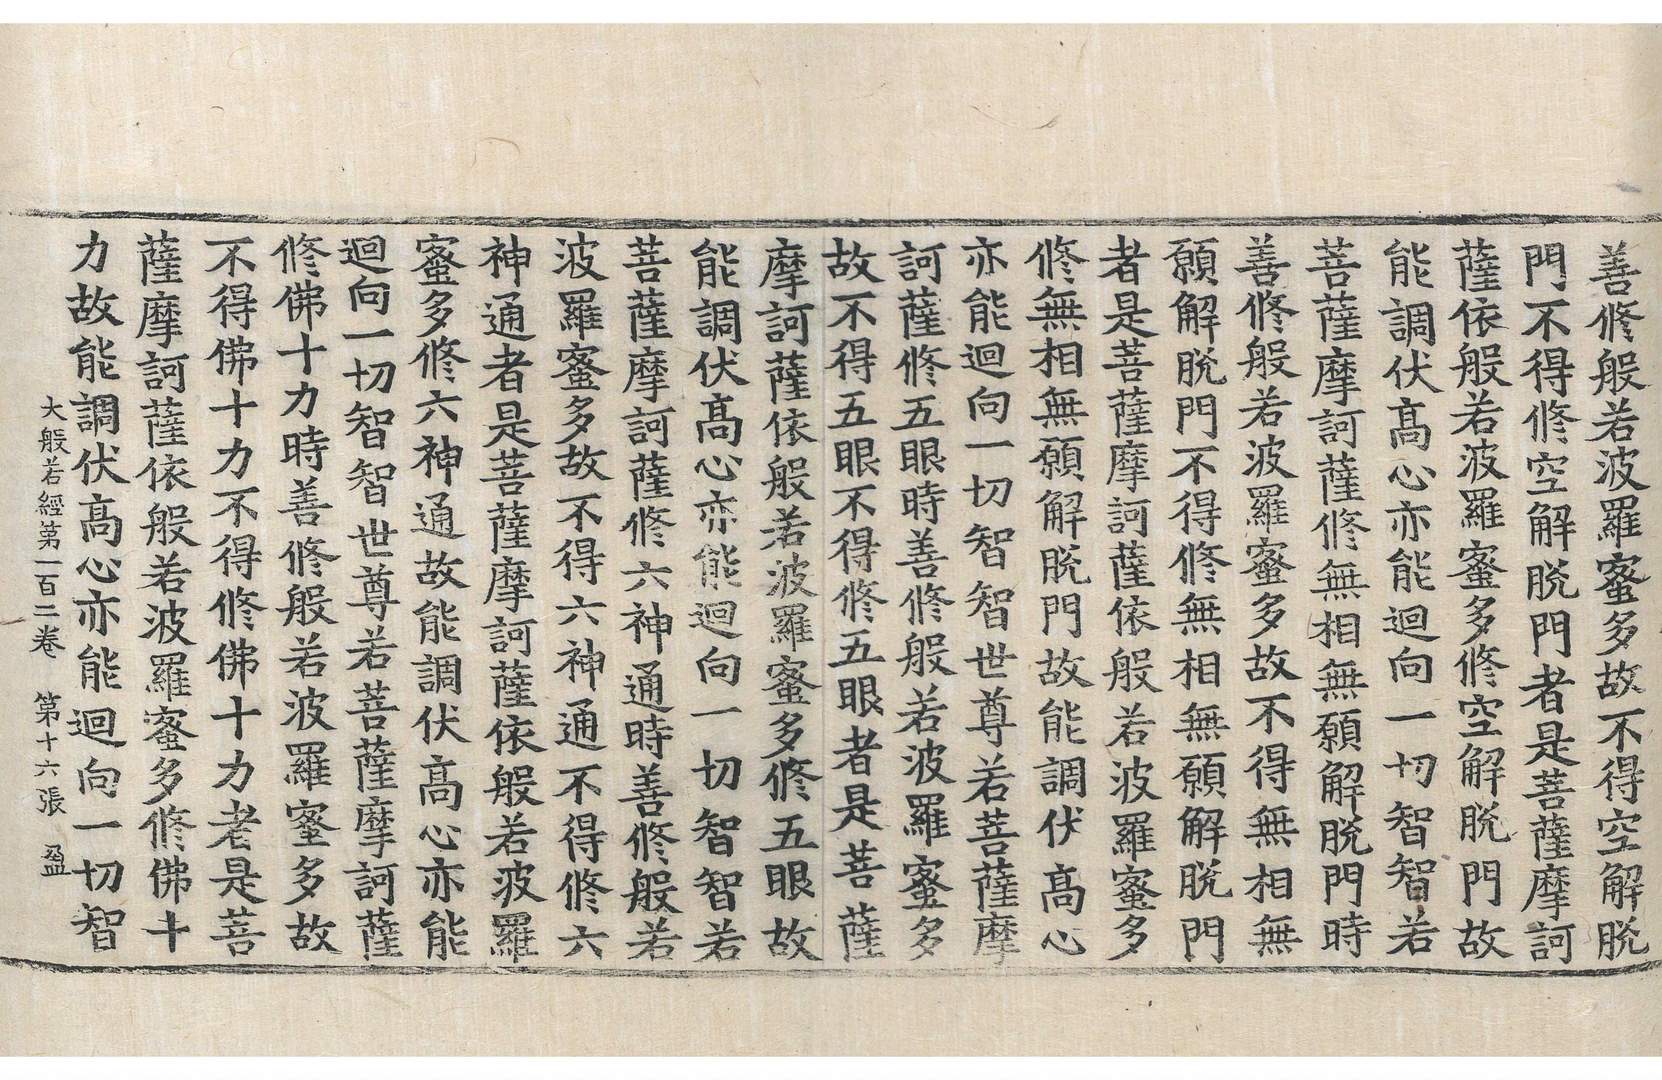 善修般若波羅蜜多故不得空解脱
門不得修空解脱門者是菩薩摩訶
薩依般若波羅蜜多修空解脱門故
能調伏髙心亦能迴向一切智智若
菩薩摩訶薩修無相無願解脱門時
善修般若波羅蜜多故不得無相無
願解脱門不得修無相無願解脱門
者是菩薩摩訶薩依般若波羅蜜多
修無相無願解脱門故能調伏髙心
亦能迴向一切智智世尊若菩薩摩
訶薩修五眼時善修般若波羅蜜多
故不得五眼不得修五眼者是菩薩
摩訶薩依般若波羅蜜多修五眼故
能調伏髙心亦能迴向一切智智若
菩薩摩訶薩修六神通時善修般若
波羅蜜多故不得六神通不得修六
神通者是菩薩摩訶薩依般若波羅
蜜多修六神通故能調伏髙心亦能
迴向一切智智世尊若菩薩摩訶薩
修佛十力時善修般若波羅蜜多故
不得佛十力不得修佛十力者是菩
薩摩訶薩依般若波羅蜜多修佛十
力故能調伏髙心亦能迴向一切智
大般若經第一百二卷 第十六張 盈